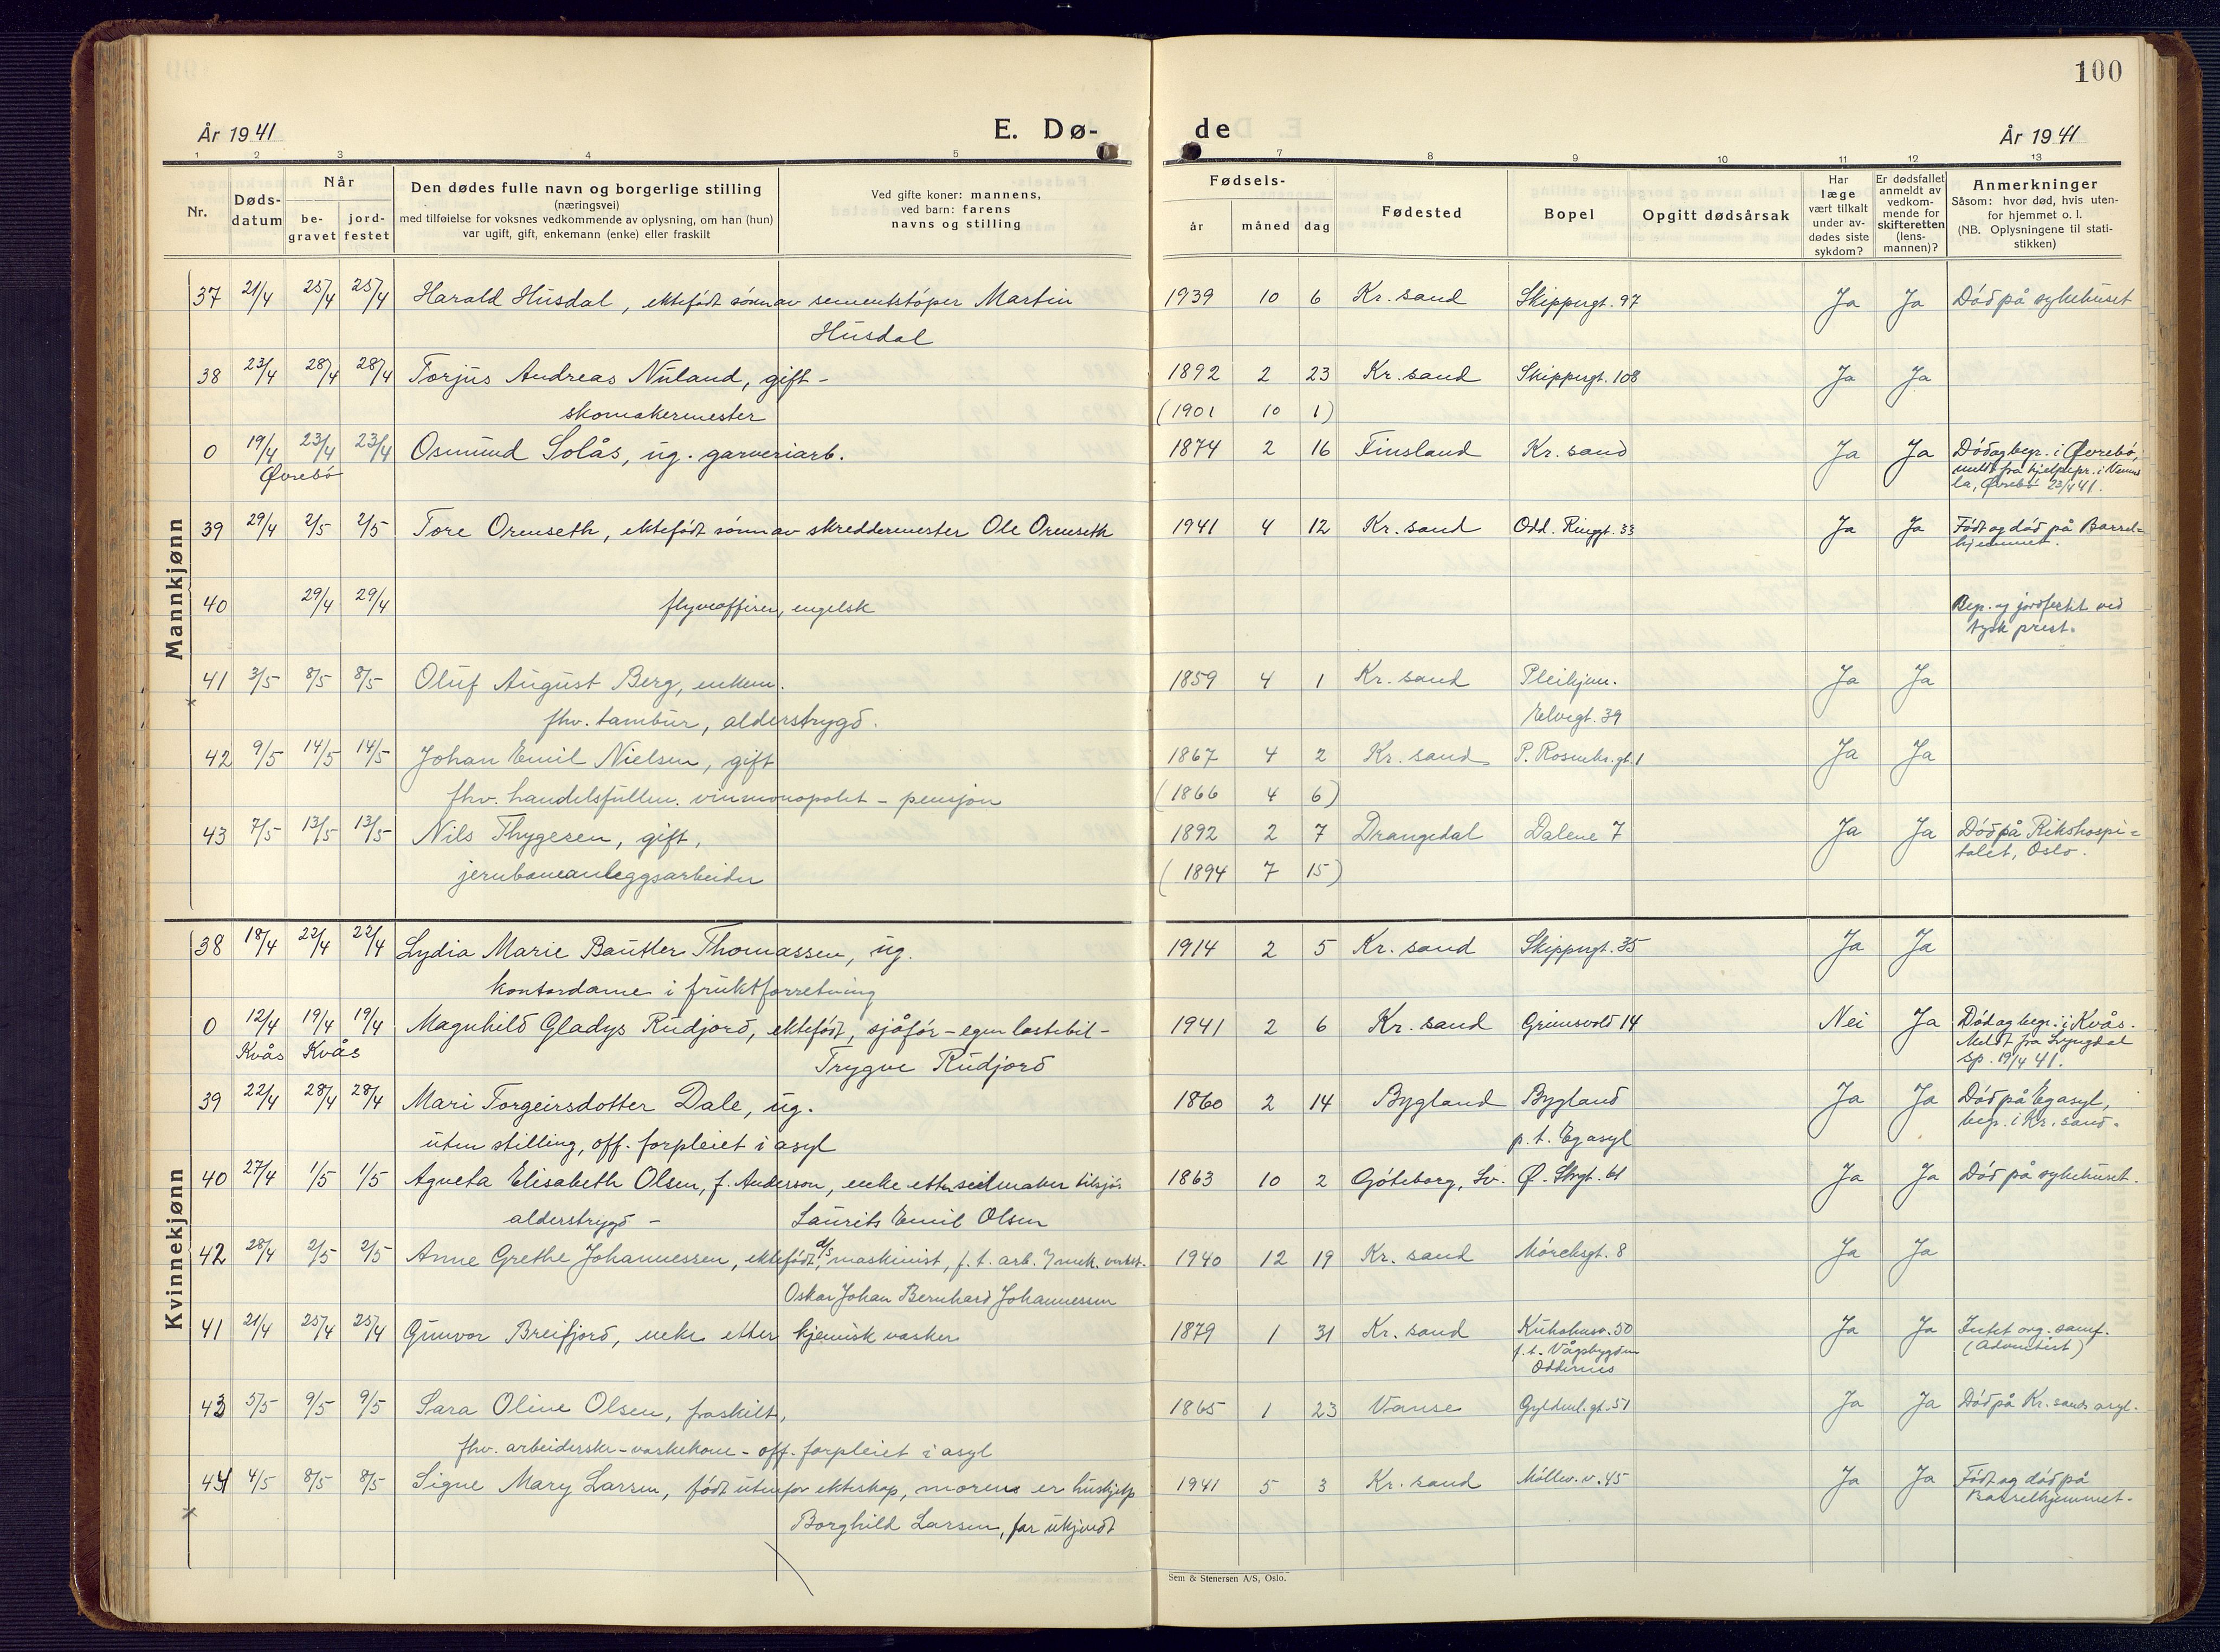 100
År 1941
E. Dø-
de
År 1941
1 2 3 4 5 7 8 9 10 11 12 13
Nr.
Døds-
datum
Når
be-
gravet
jord-
festet
Den dødes fulle navn og borgerlige stilling
(næringsvei)
med tilføielse for voksnes vedkommende av oplysning, om han (hun)
var ugift, gift, enkemann (enke) eller fraskilt
Ved gifte koner: mannens,
ved barn: farens
navns og stilling
Fødsels-
år måned dag
Fødested
Bopel
Opgitt dødsårsak
Har
læge
vært tilkalt
under av-
dødes siste
sykdom?
Er dødsfallet
anmeldt av
vedkom-
mende for
skifteretten
(lens-
mannen)?
Anmerkninger
Såsom: hvor død, hvis uten-
for hjemmet o. l.
(NB. Oplysningene til stati-
stikken)
Mannkjønn
37 21/4 25/4 25/4 Harald Husdal, ektefødt sønn av sementstøper Martin 1939 10 6 Kr.sand Skippergt. 97 Ja Ja Død på sykehuset
Husdal
38 23/4 28/4 28/4 Torjus Andreas Nuland, gift - 1892 2 23 Kr.sand Skippergt. 108 Ja Ja
skomakermester (1901 10 1)
0 19/4 23/4 23/4 Osmund Solås, ug. garveriarb. 1874 2 16 Finsland Kr.sand Ja Ja Død og begr. i Øvrebø,
Øvrebø meldt fra hjelpepr. i Venns
la, Øvrebø 23/4 41.
39 29/4 2/5 2/5 Tore Orenseth, ektefødt sønn av skreddermester Ole Orenseth 1941 4 12 Kr.sand Odd. Ringgt. 33 Ja Ja Født og død på Barsel=
hjemmet.
40 29/4 29/4 flyveoffiser, engelsk Begr. og jordfestet ved
tysk prest.
41 3/5 8/5 8/5 Oluf August Berg, enkem. 1859 4 1 Kr.sand Pleihjem. Ja Ja
x fhv. tambur, alderstrygd. Elvegt. 39
42 9/5 14/5 14/5 Johan Emil Nielsen, gift 1867 4 2 Kr.sand P. Rosenkr.gt. 1 Ja Ja
fhv. handelsfullm. vinmonopolet - pensjon (1866 4 6)
43 7/5 13/5 13/5 Nils Thygesen, gift, 1892 2 7 Drangedal Dalene 7 Ja Ja Død på Rikshospi=
jernbaneanleggsarbeider (1894 7 15) talet, Oslo.
Kvinnekjønn
38 18/4 22/4 22/4 Lydia Marie Bautler Thomassen, ug. 1914 2 5 Kr.sand Skippergt. 35 Ja Ja
kontordame i fruktforretning
0 12/4 19/4 19/4 Magnhild Gladys Rudjord, ektefødt, sjåfør - egen lastebil - 1941 2 6 Kr.sand Grimsvold 14 Nei Ja Død og begr. i Kvås.
Kvås Kvås Trygve Rudjord Meldt fra Lyngdal
sp. 19/4 41.
39 22/4 28/4 28/4 Mari Torgeirsdotter Dale, ug. 1860 2 14 Bygland Bygland Ja Ja Død på Eg asyl,
uten stilling, off. forpleiet i asyl p.t. Eg asyl begr. i Kr.sand.
40 27/4 1/5 1/5 Agneta Elisabeth Olsen, f. Anderson, enke etter seilmaker tilsjøs 1863 10 2 Göteborg, Sv. Ø. Strgt. 61 Ja Ja Død på sykehuset.
alderstrygd - Laurits Emil Olsen
42 28/4 2/5 2/5 Anne Grethe Johannessen, ektefødt, d/s maskinist, f.t. arb. v/ mek. verkst. 1940 12 19 Kr.sand Mørcksgt. 8 Ja Ja
Oskar Johan Bernhard Johannessen
41 21/4 25/4 25/4 Gunvor Breifjord, enke etter kjemisk vasker 1879 1 31 Kr.sand Kuholmsv. 50 Ja Ja Intet org. samf.
f.t. Vågsbygden (Adventist)
Oddernes
43 5/5 9/5 9/5 Sara Oline Olsen, fraskilt, 1865 1 23 Vanse Gyldenl.gt. 51 Ja Ja Død på Kr.sands asyl.
fhv. arbeiderske - vaskekone - off. forpleiet i asyl
44 4/5 8/5 8/5 Signe Mary Larsen, født utenfor ekteskap, moren er hushjelp 1941 5 3 Kr.sand Møllev.v. 45 Ja Ja Født og død på
x Borghild Larsen, far ukjendt Barselhjemmet.
Sem & Stenersen A/S, Oslo.